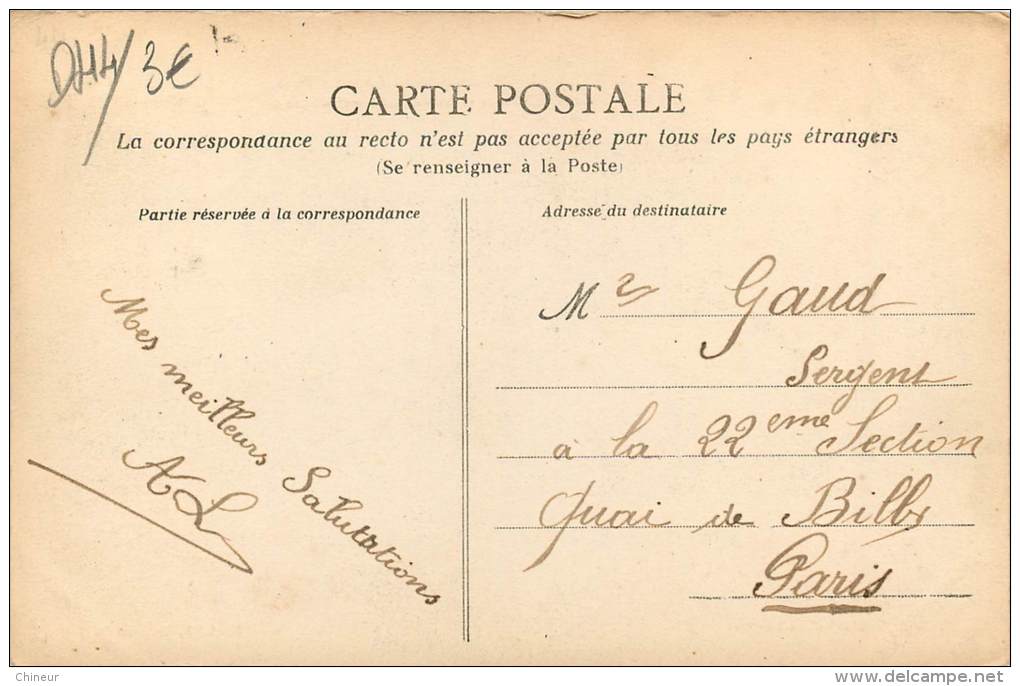 DH4/ 3€
CARTE POSTALE
La correspondance au recto n'est pas acceptée par tous les pays étrangers
(Se renseigner à la Poste)
Partie réservée à la correspondance
Adresse du destinataire
Mes meilleurs Salutations
AL
Mr Gaud
Sergent
à la 22eme Section
Quai de Billy
Paris
Chineur
www.delcampe.net